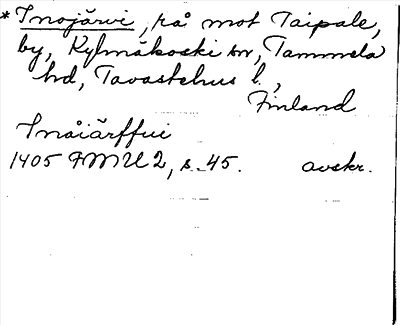 * Inojärvi, rå mot Taipale,
by, Kylmäkoski sn, Tammela
hd, Tavastehus l.,
Finland
Inåiärffui
1405 FMU 2, s. 45. avskr.